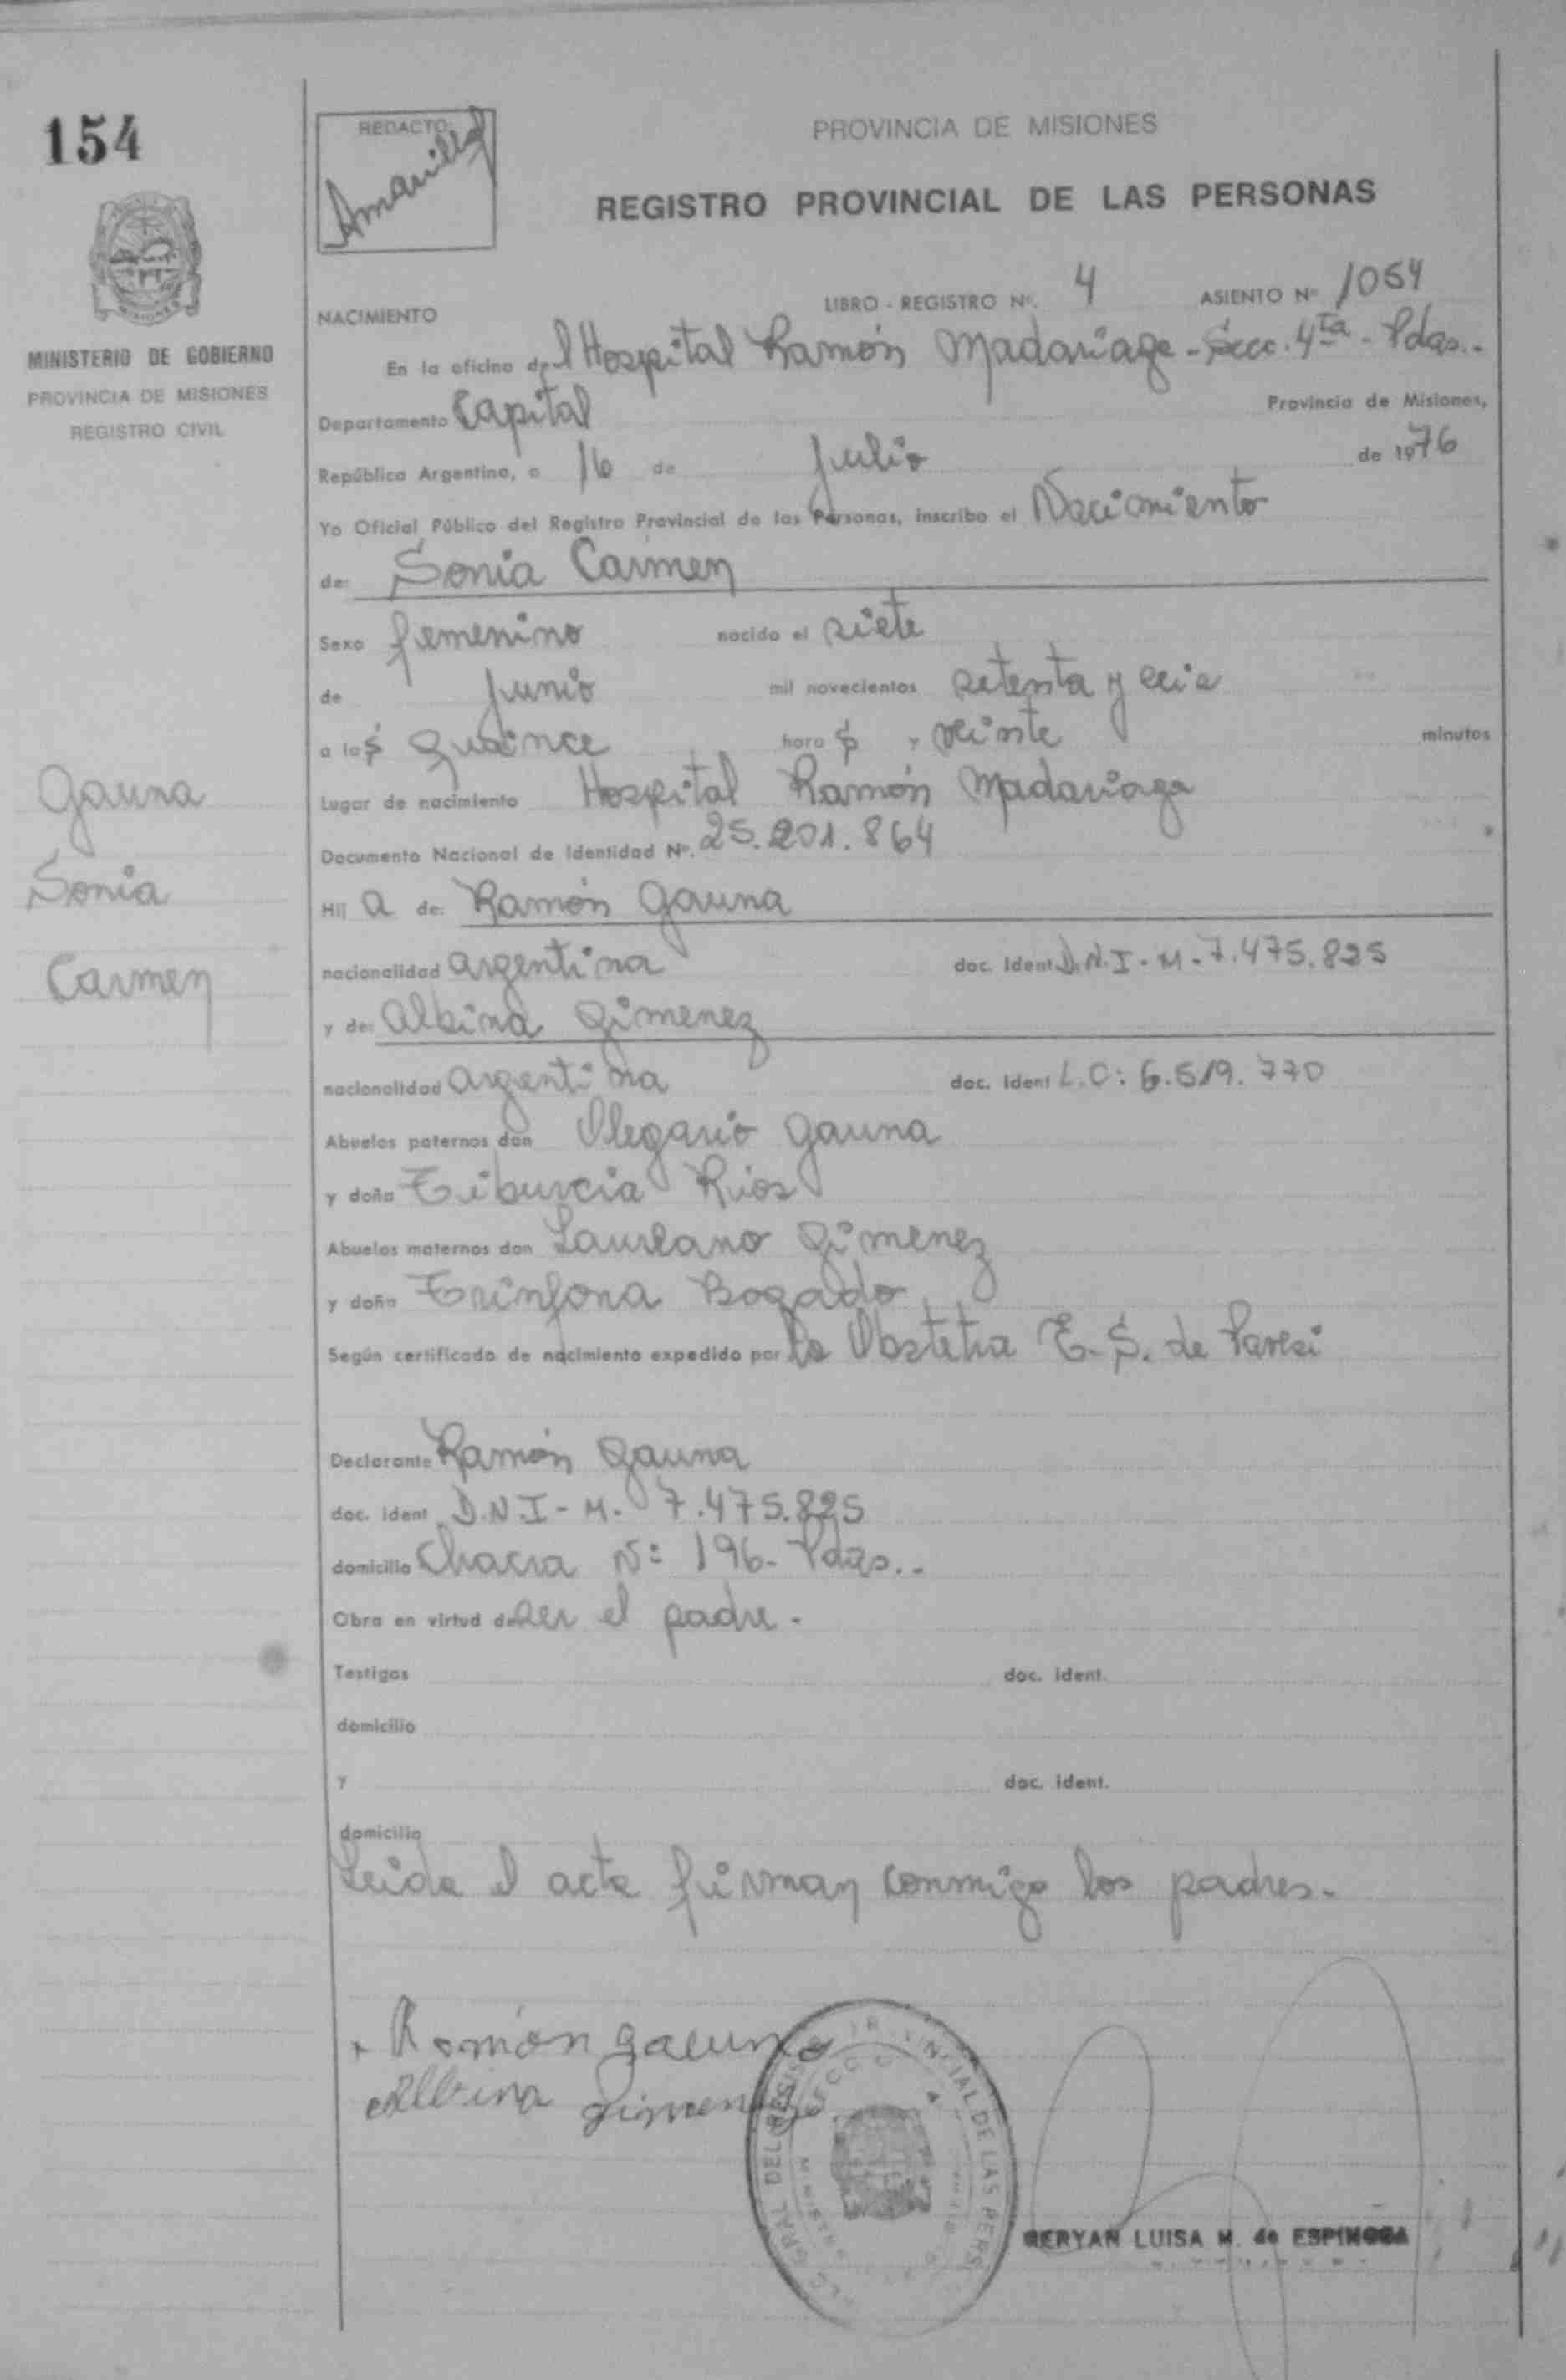 154
REDACTO:
Amarilla
PROVINCIA DE MISIONES
REGISTRO PROVINCIAL DE LAS PERSONAS
MINISTERIO DE GOBIERNO
PROVINCIA DE MISIONES
REGISTRO CIVIL
NACIMIENTO LIBRO - REGISTRO Nº. 4 ASIENTO Nº 1054
En la oficina del Hospital Ramón Madariaga - Secc. 4ta - Pdas..-
Departamento Capital Provincia de Misiones,
República Argentina, a 16 de Julio de 1976
Yo Oficial Público del Registro Provincial de las Personas, inscribo el Nacimiento
de: Sonia Carmen
Sexo femenino nacido el siete
de Junio mil novecientos setenta y seis
a las quince horas y veinte minutos
Gauna
Sonia
Carmen
Lugar de nacimiento Hospital Ramón Madariaga
Documento Nacional de Identidad Nº. 25.201.864
Hij a de: Ramón Gauna
nacionalidad argentina doc. Ident D.N.I - M - 7.475.825
y de: Albina Gimenez
nacionalidad argentina doc. Ident L.C: 6.519.770
Abuelos paternos don Olegario Gauna
y doña Tiburcia Rios
Abuelos maternos don Laureano Gimenez
y doña Trinfona Bogado
Según certificado de nacimiento expedido por la Obstetra E. S. de Paresi
Declarante Ramón Gauna
doc. ident D.N.I - M. 7.475.825
domicilio Chacra Nº: 196 - Pdas..-
Obra en virtud de ser el padre.-
Testigos doc. ident.
domicilio
y doc. ident.
domicilio
Leida el acta firman conmigo los padres.-
Ramón Gauna
Albina Gimenez
DEL REGISTRO PROVINCIAL DE LAS PERS
LUISA M. de ESPINOSA